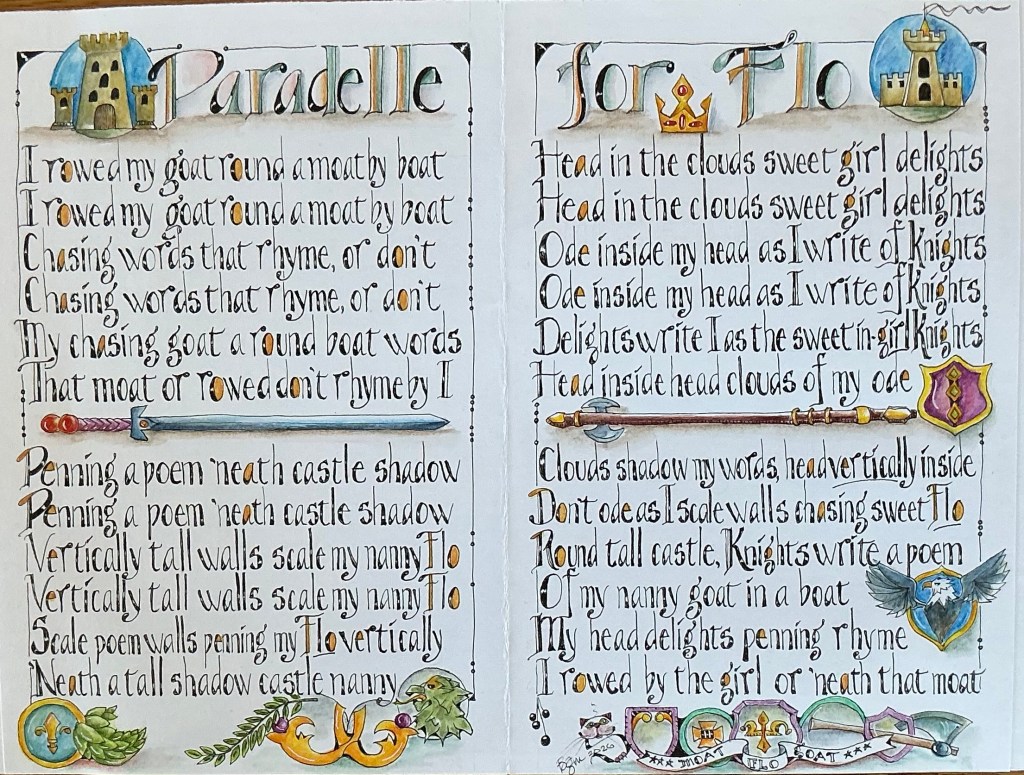 Paradelle
I rowed my goat round a moat by boat
I rowed my goat round a moat by boat
Chasing words that rhyme, or don't
Chasing words that rhyme, or don't
My chasing goat a round boat words
That moat or rowed don't rhyme by I
Penning a poem 'neath castle shadow
Penning a poem 'neath castle shadow
Vertically tall walls scale my nanny Flo
Vertically tall walls scale my nanny Flo
Scale poem walls penning my Flo vertically
Neath a tall shadow castle nanny
for Flo
Head in the clouds sweet girl delights
Head in the clouds sweet girl delights
Ode inside my head as I write of Knights
Ode inside my head as I write of Knights
Delights write I as the sweet in-girl Knights
Head inside head clouds of my ode
Clouds shadow my words, head vertically inside
Don't ode as I scale walls chasing sweet Flo
Round tall castle, Knights write a poem
Of my nanny goat in a boat
My head delights penning rhyme
I rowed by the girl or 'neath that moat
2026
MOAT FLO GOAT